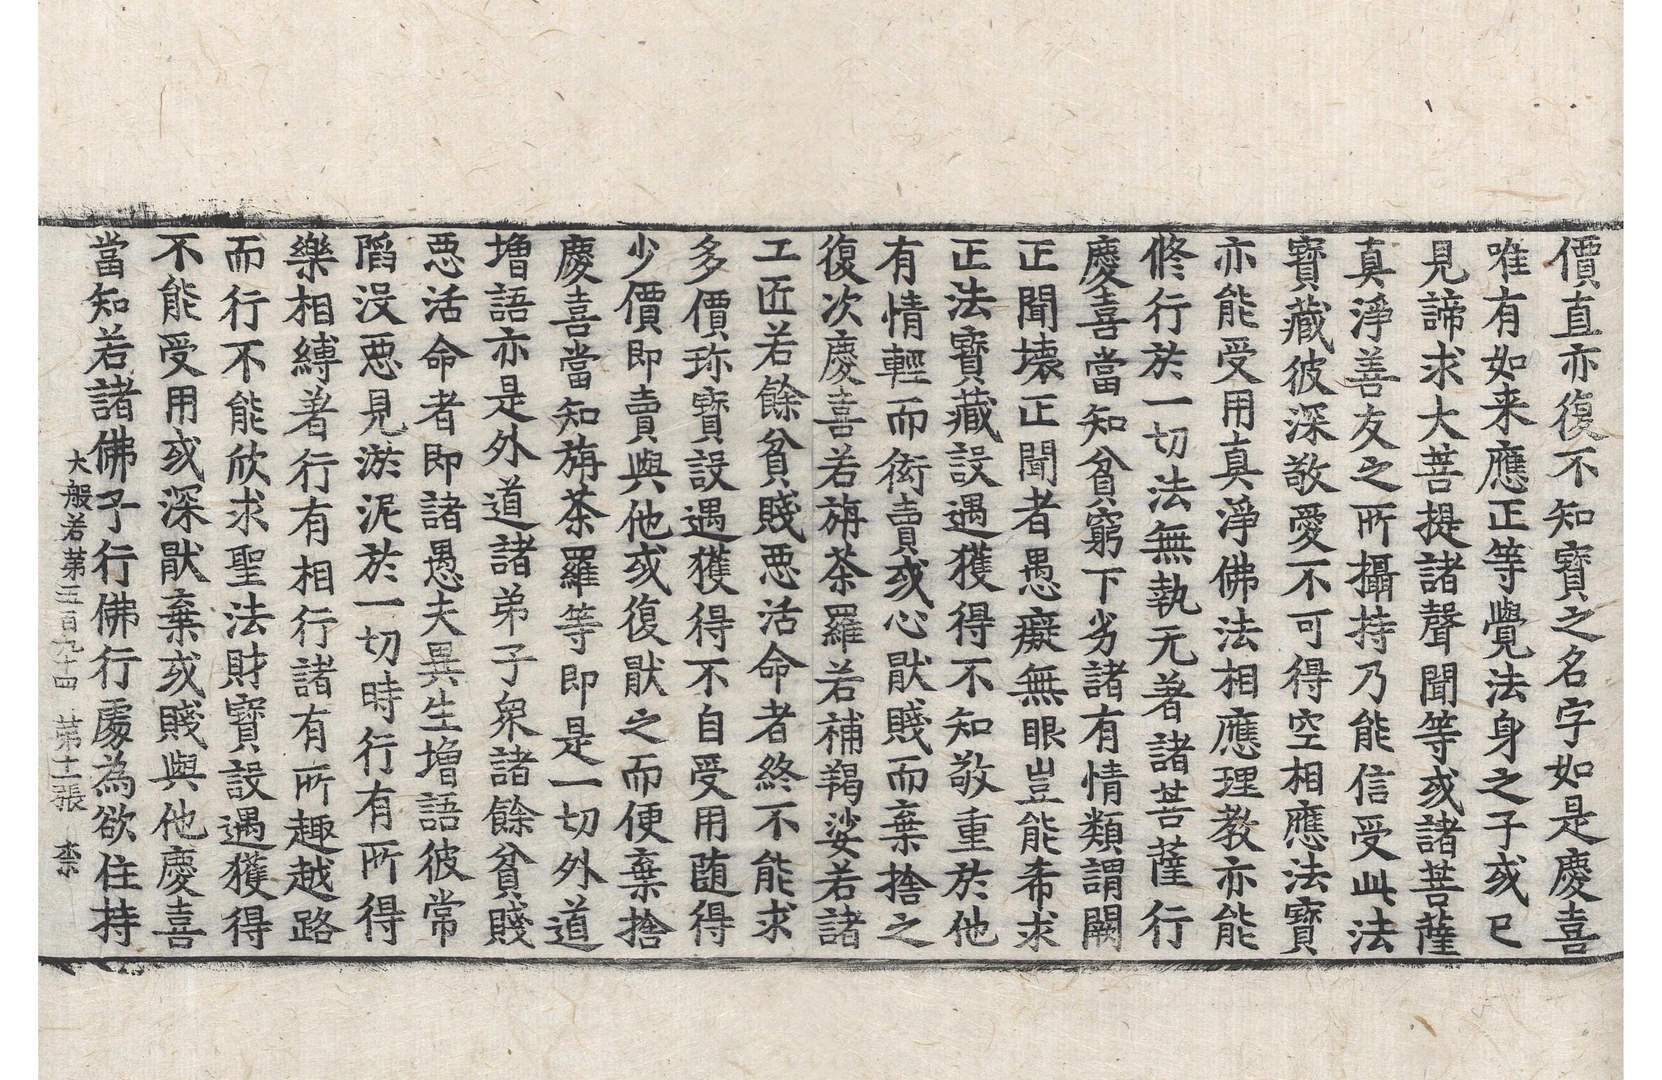 價直亦復不知寶之名字如是慶喜
唯有如来應正等覺法身之子或已
見諦求大菩提諸聲聞等或諸菩薩
真淨善友之所攝持乃能信受此法
寶藏彼深敬愛不可得空相應法寶
亦能受用真淨佛法相應理教亦能
修行於一切法無執无著諸菩薩行
慶喜當知貧窮下劣諸有情類謂闕
正聞壞正聞者愚癡無眼豈能希求
正法寶藏設遇獲得不知敬重於他
有情輕而衒賣或心猒賤而棄捨之
復次慶喜若旃荼羅若補羯娑若諸
工匠若餘貧賤惡活命者終不能求
多價珎寶設遇獲得不自受用随得
少價即賣與他或復猒之而便棄捨
慶喜當知旃荼羅等即是一切外道
增語亦是外道諸弟子衆諸餘貧賤
惡活命者即諸愚夫異生增語彼常
陷沒惡見淤泥於一切時行有所得
樂相縛著行有相行諸有所趣越路
而行不能欣求聖法財寶設遇獲得
不能受用或深猒棄或賤與他慶喜
當知若諸佛子行佛行處為欲住持
大般若第五百九十四 第十二張 柰